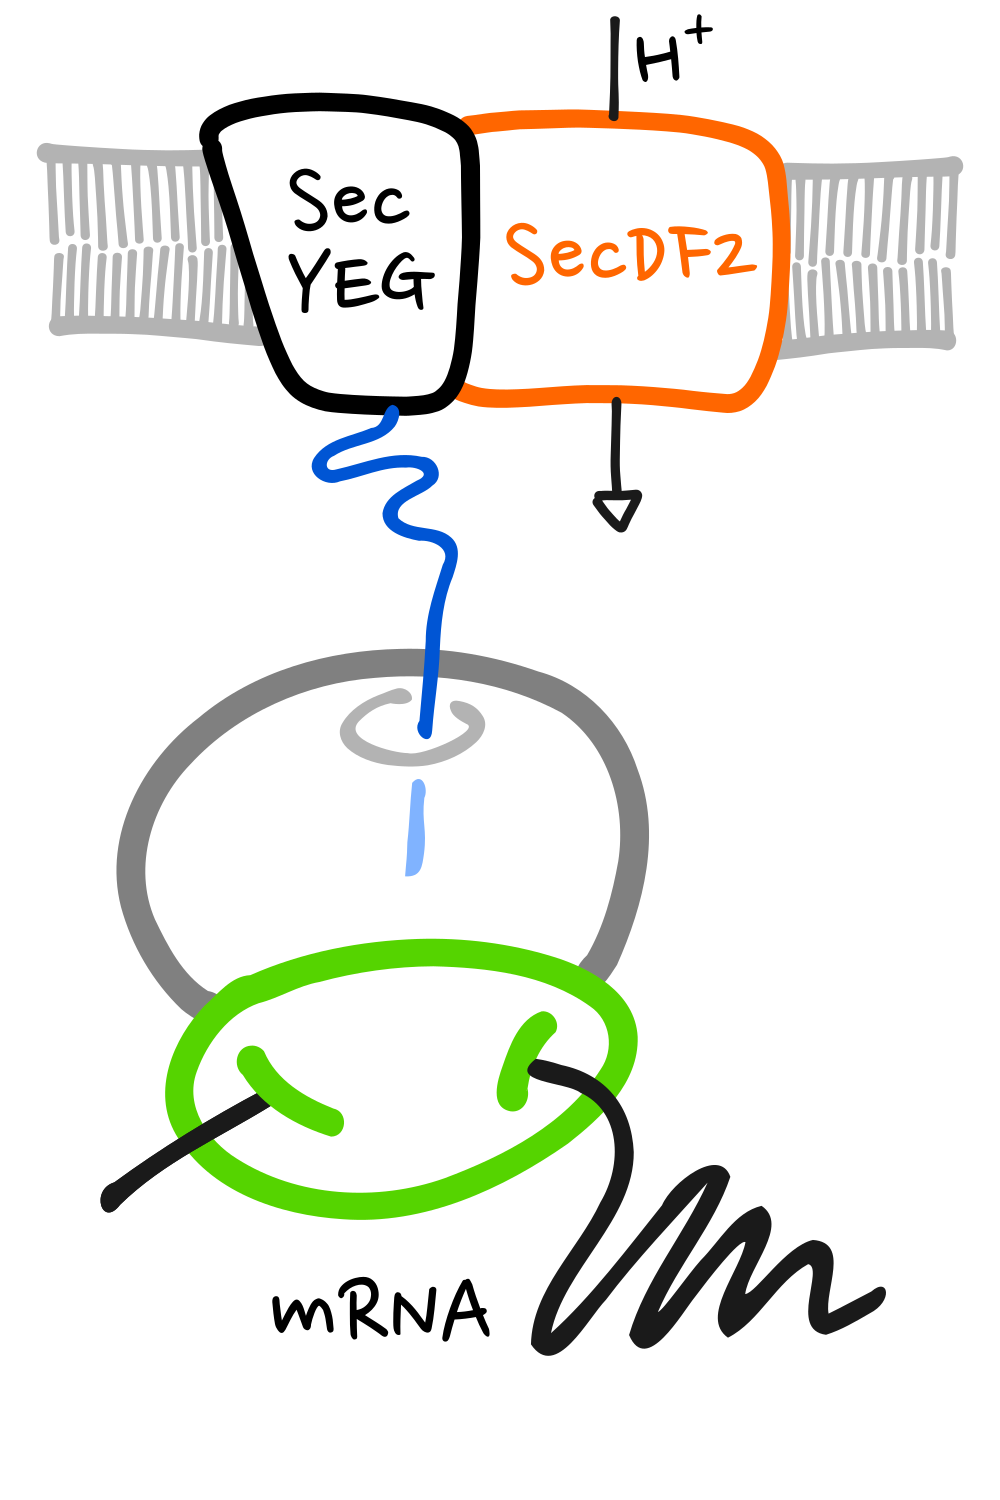 H⁺
Sec
YEG
SecDF2
mRNA